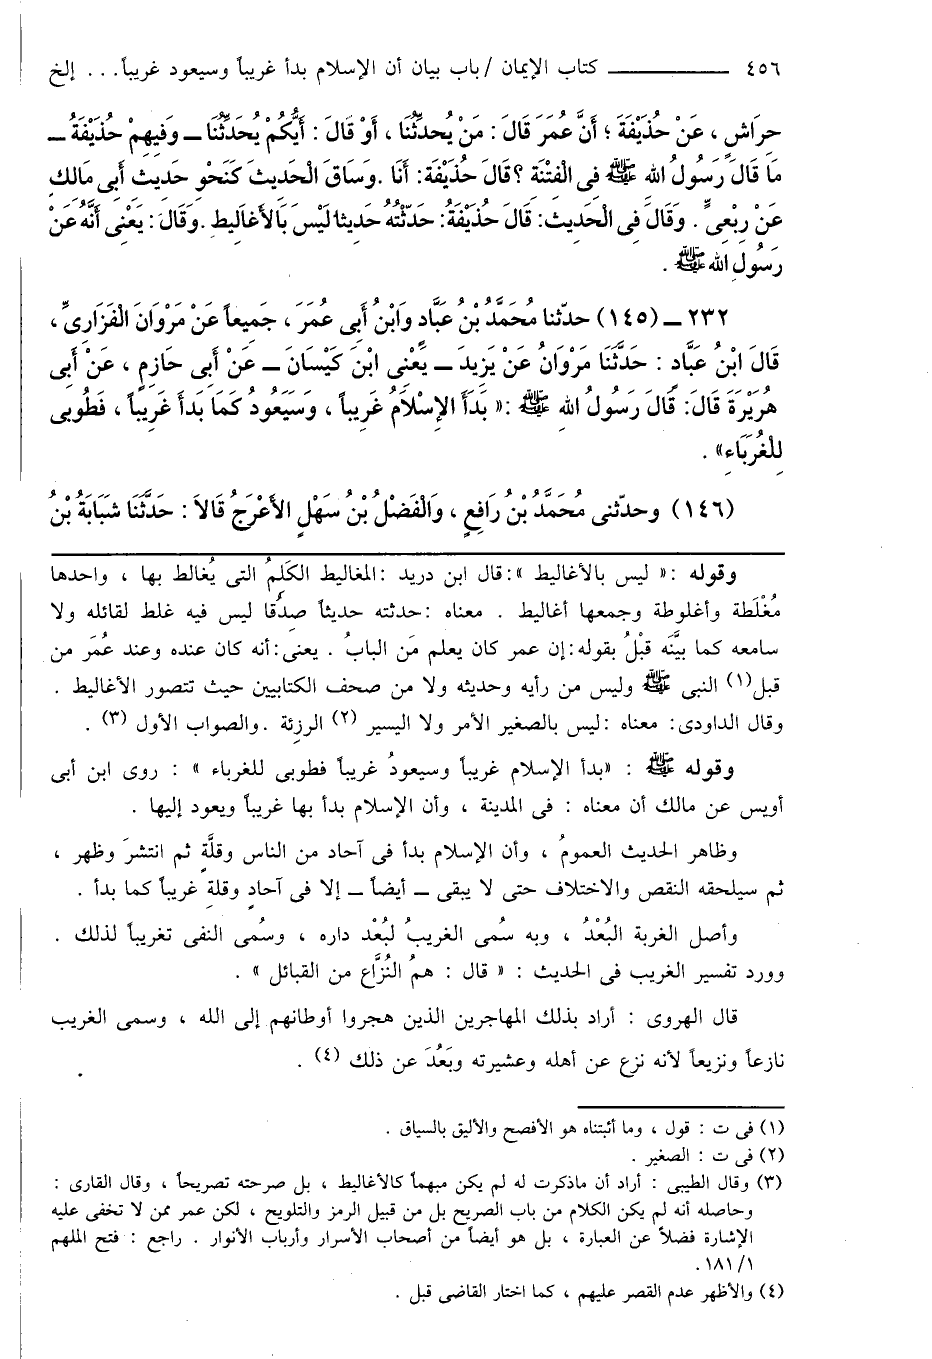 ٤٥٦ ــــــــــــ كتاب الإيمان / باب بيان أن الإسلام بدأ غريباً وسيعود غريباً... إلخ
حِرَاشٍ ، عَنْ حُذَيْفَةَ ؛ أَنَّ عُمَرَ قَالَ : مَنْ يُحدِّثُنَا ، أَوْ قَالَ : أَيُّكُمْ يُحَدِّثُنَا ــ وَفِيهِمْ حُذَيْفَةُ ــ
مَا قَالَ رَسُولُ الله ﷺ فِى الْفِتْنَةِ ؟ قَالَ حُذَيْفَةُ: أَنَا . وَسَاقَ الْحَدِيثَ كَنَحْوِ حَدِيثِ أَبِى مَالك
عَنْ رِبْعِىٍّ . وَقَالَ فِى الْحَدِيث: قَالَ حُذَيْفَةُ: حَدَّثْتُهُ حَدِيثا لَيْسَ بَالأَغَالِيط . وَقَالَ: يَعْنِى أَنَّهُ عَنْ
رَسُولِ الله ﷺ .
٢٣٢ ــ (١٤٥) حدّثنا مُحَمَّدُ بْنُ عَبَّادٍ وَابْنُ أَبِى عُمَرَ ، جَمِيعاً عَنْ مَرْوَانَ الْفَزَارِىِّ ،
قَالَ ابْنُ عَبَّادٍ : حَدَّثَنَا مَرْوَانُ عَنْ يَزِيدَ ــ يَعْنِى ابْنَ كَيْسَانَ ــ عَنْ أَبِى حَازِمٍ ، عَنْ أَبِى
هُرَيْرَةَ قَالَ: قَالَ رَسُولُ الله ﷺ :« بَدَأَ الإِسْلاَمُ غَرِيباً ، وَسَيَعُود كَمَا بَدَأَ غَرِيباً ، فَطُوبى
لِلْغُرَبَاءِ» .
(١٤٦) وحدّثنى مُحَمَّدُ بْنُ رَافِعٍ ، وَالْفَضْلُ بْنُ سَهْلٍ الأَعْرَجُ قَالاَ : حَدَّثَنَا شَبَابَةُ بْنُ
وقوله :« ليس بالأغاليط »: قال ابن دريد :المغاليط الكَلِمُ التى يُغالط بها ، واحدها
مُغْلَطَة وأغلوطة وجمعها أغاليط . معناه :حدثته حديثاً صِدْقا ليس فيه غلط لقائله ولا
سامعه كما بيَّنَه قبْلُ بقوله:إن عمر كان يعلم مَن البابُ . يعنى:أنه كان عنده وعند عُمَر من
قبل(١) النبى ﷺ وليس من رأيه وحديثه ولا من صحف الكتابيين حيث تتصور الأغاليط .
وقال الداودى: معناه :ليس بالصغير الأمر ولا اليسير (٢) الرزئة .والصواب الأول (٣) .
وقوله ﷺ : «بدأ الإسلام غريباً وسيعودُ غريباً فطوبى للغرباء » : روى ابن أبى
أويس عن مالك أن معناه : فى المدينة ، وأن الإسلام بدأ بها غريباً ويعود إليها .
وظاهر الحديث العمومُ ، وأن الإسلام بدأ فى آحاد من الناس وقلَّةٍ ثم انتشرَ وظهر ،
ثم سيلحقه النقص والاختلاف حتى لا يبقى ــ أيضاً ــ إلا فى آحادٍ وقلةٍ غريباً كما بدأ .
وأصل الغربة البُعْدُ ، وبه سُمى الغريبُ لبُعْد داره ، وسُمى النفى تغريباً لذلك .
وورد تفسير الغريب فى الحديث : « قال : همُ النُزَّاع من القبائل » .
قال الهروى : أراد بذلك المهاجرين الذين هجروا أوطانهم إلى الله ، وسمى الغريب
نازعاً ونزيعاً لأنه نزع عن أهله وعشيرته وبَعُدَ عن ذلك (٤) .
(١) فى ت : قول ، وما أثبتناه هو الأفصح والأليق بالسياق .
(٢) فى ت : الصغير .
(٣) وقال الطيبى : أراد أن ماذكرت له لم يكن مبهماً كالأغاليط ، بل صرحته تصريحاً ، وقال القارى :
وحاصله أنه لم يكن الكلام من باب الصريح بل من قبيل الرمز والتلويح ، لكن عمر ممن لا تخفى عليه
الإشارة فضلاً عن العبارة ، بل هو أيضاً من أصحاب الأسرار وأرباب الأنوار . راجع : فتح الملهم
١/ ١٨١ .
(٤) والأظهر عدم القصر عليهم ، كما اختار القاضى قبل .